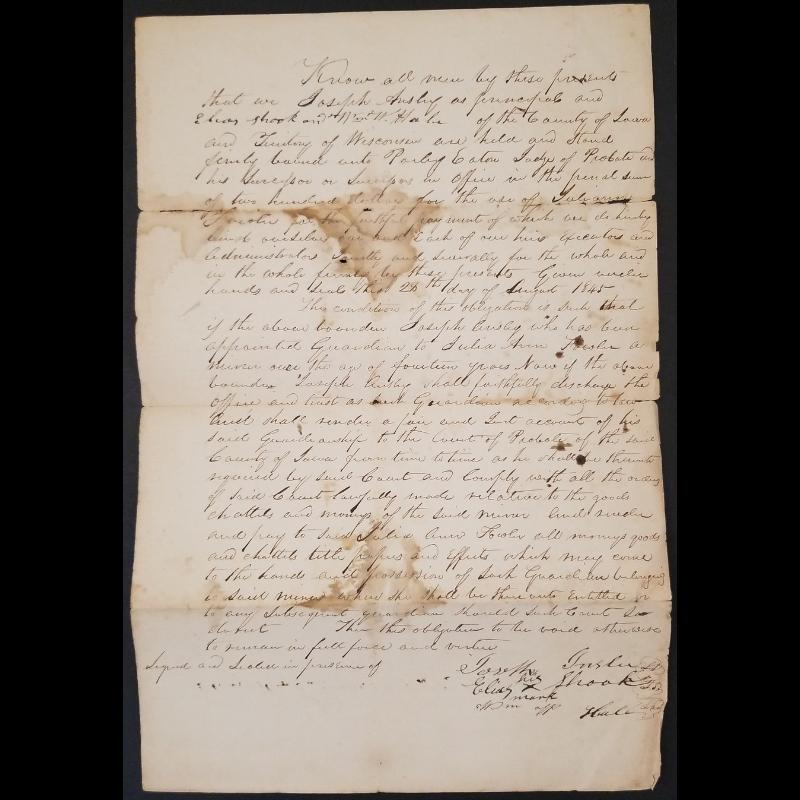 Know all men by these presents
that we Joseph Ansley as principal and
Elias Shook and Wm W. Hale of the County of Iowa
and Territory of Wisconsin are held and stand
firmly bound unto Parley Eaton Judge of Probate and
his Successor or Successors in Office in the penal sum
of two hundred dollars for the use of Juliann
for the faithful payment of which we do hereby
bind ourselves our and Each of our heirs Executors and
Administrators Jointly and severally for the whole and
in the whole firmly by these presents Given under
hands and seals this 28th day of August 1845
The condition of this obligation is such that
if the above bounden Joseph Ansley who has been
appointed Guardian to Julia Ann Fowler a
minor over the age of fourteen years Now if the above
bounden Joseph Ansley shall faithfully discharge the
office and trust as such Guardian according to law
and shall render a fair and Just account of his
said Guardianship to the Court of Probate of the said
County of Iowa from time to time as he shall be thereunto
required by said Court and Comply with all the orders
of said Court lawfully made relative to the goods
chattels and moneys of the said minor and render
and pay to said Julia Ann Fowler all moneys goods
and chattels title papers and effects which may come
to the hands and possession of such Guardian belonging
to said minor when she shall be thereunto Entitled or
to any Subsequent guardian should such Court So
direct Then this obligation to be void otherwise
to remain in full force and virtue
Signed and Sealed in presence of
Joseph Ansley
Elias his x mark Shook
Wm W Hale